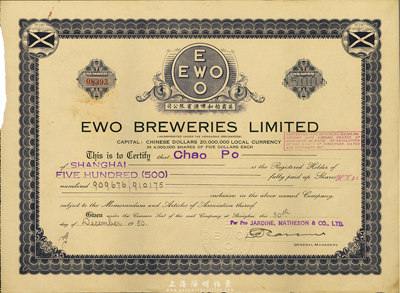 08393
EWO
EWO
英商怡和啤酒有限公司
EWO BREWERIES LIMITED
(INCORPORATED UNDER THE COMPANIES ORDINANCES)
CAPITAL: CHINESE DOLLARS 20,000,000 LOCAL CURRENCY
IN 4,000,000 SHARES OF FIVE DOLLARS EACH
This is to Certify that Chao Po
of SHANGHAI is the Registered Holder of
FIVE HUNDRED (500) fully paid up Shares
numbered 909676/910175
inclusive in the above named Company,
subject to the Memorandum and Articles of Association thereof.
Given under the Common Seal of the said Company at Shanghai, this 30th
day of December 1950.
For Pro JARDINE, MATHESON & CO., LTD.
GENERAL MANAGERS
上海阳明拍卖